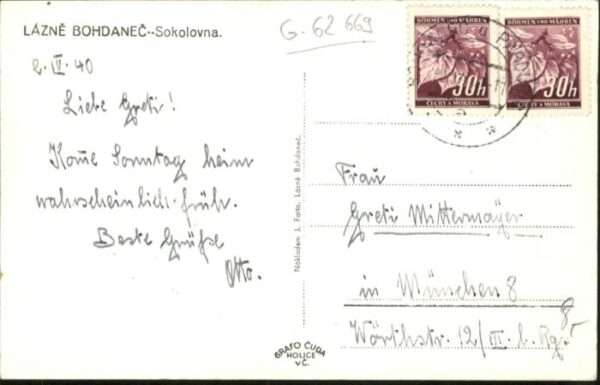 LÁZNĚ BOHDANEČ--Sokolovna.
G-62 669
2.IV.40
Liebe Greti!
Komme Sonntag heim
wahrscheinlich früh.
Beste Grüße
Otto.
Nákladem J. Forta, Lázně Bohdaneč.
GRAFO ČUDA
HOLICE
V.Č.
BÖHMEN UND MÄHREN
30h
ČECHY A MORAVA
BÖHMEN UND MÄHREN
30h
ČECHY A MORAVA
Frau
Greti Mittermayer
in München 8
Wörthstr. 12/III. b. Rg.